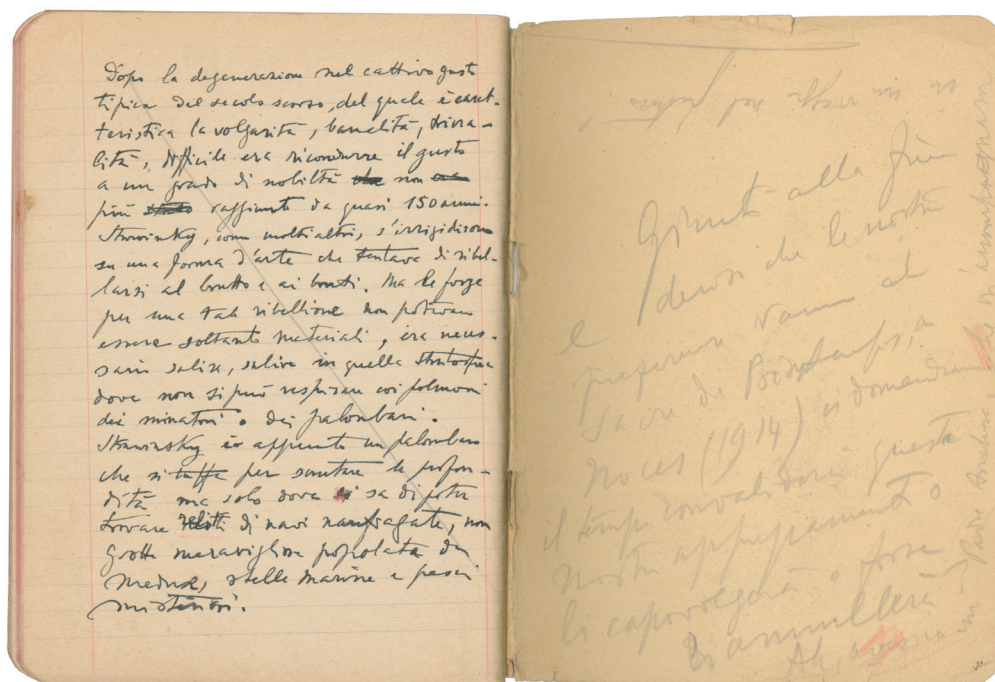 Dopo la degenerazione nel cattivo gusto
tipica del secolo scorso, del quale è carat-
teristica la volgarità, banalità, trivia-
lità, difficile era ricondurre il gusto
a un grado di nobiltà che non
più stato raggiunto da quasi 150 anni.
Strawinsky, come molti altri, s'irrigidiscono
su una forma d'arte che tentava di ribel-
larsi al brutto e ai bruti. Ma le forze
per una tale ribellione non potevano
essere soltanto materiali, era neces-
sario salire, salire in quella stratosfera
dove non si può respirare coi polmoni
dei minatori o dei palombari.
Strawinsky è appunto un palombaro
che si tuffa per scrutare le profon-
dità ma solo dove si sa di poter
trovare relitti di navi naufragate, non
grotte meravigliose popolate da
meduse, stelle marine e pesci
misteriosi.
Giunto alla fine
e devo che le nostre
preferenze vanno al
Sacre du Printemps, a
Noces (1914) ci domandiamo
il tempo convaliderà queste
nostre o
li capovolgerà o forse
li annullerà
Ah,